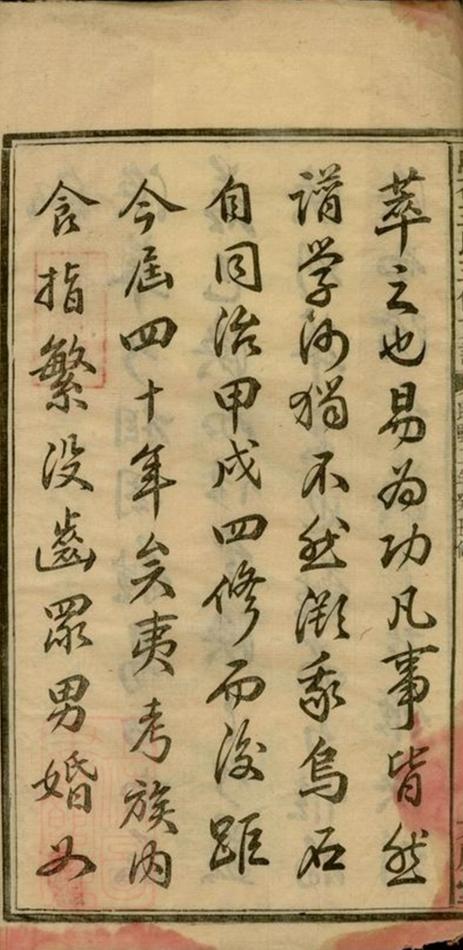 萃之也易為功凡事皆然
譜學何獨不然溯我烏石
自同治甲戌四修而後距
今屆四十年矣夷考族內
食指繁沒齒眾男婚女